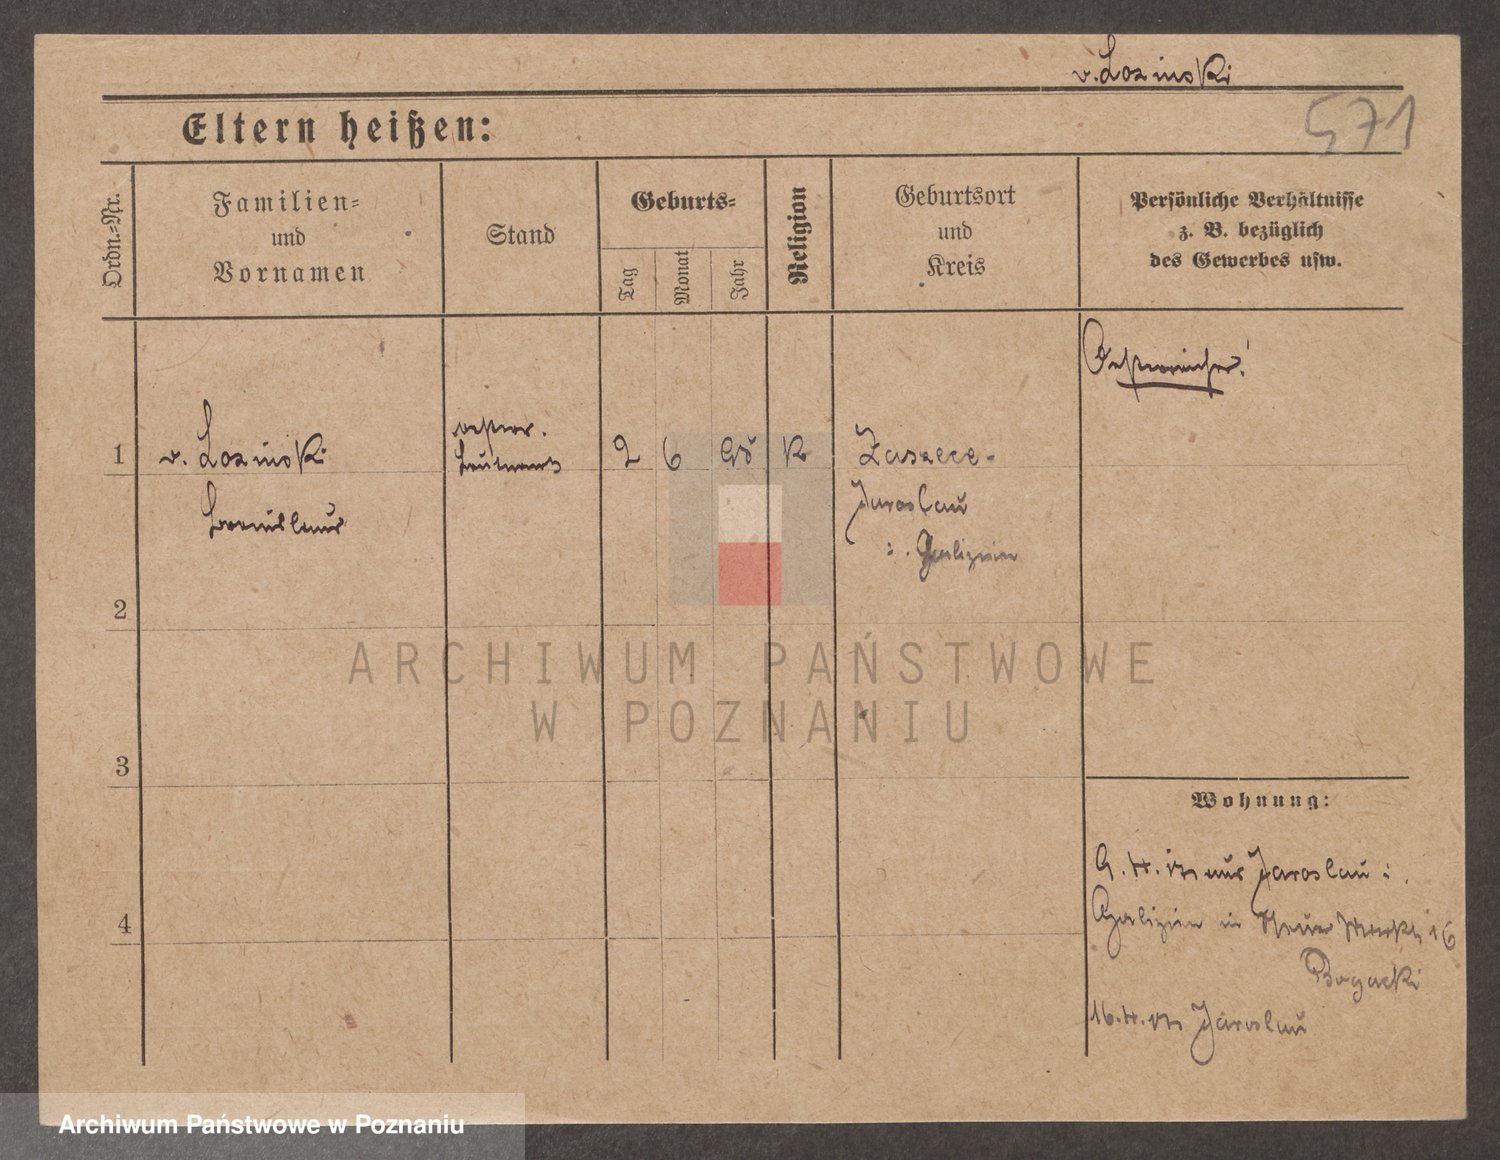 v. Lozinski
571
Eltern heißen:
Ordn.-Nr.
Familien-
und
Vornamen
Stand
Geburts-
Tag
Monat
Jahr
Religion
Geburtsort
und
Kreis
Persönliche Verhältnisse
z. B. bezüglich
des Gewerbes usw.
Oesterreicher!
1
v. Lozinski
österr.
Leutnant
2 6
K
Zarzece-
Jaroslau
i. Galizien
2
3
4
Wohnung:
aus Jaroslau i.
Galizien in Neuer Markt 16
Bogacki
16. Jaroslau
ARCHIWUM PAŃSTWOWE
W POZNANIU
Archiwum Państwowe w Poznaniu